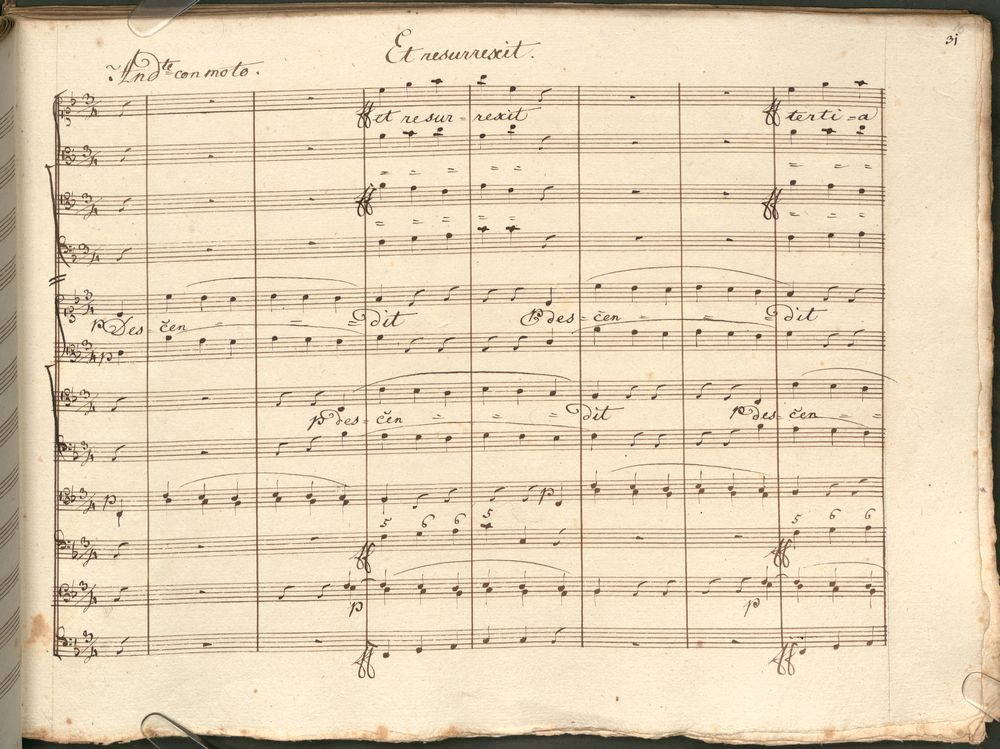 31
Et resurrexit.
Andte con moto.
ff et resur - rexit ff terti - a
= = = = = = = =
ff ff
= = = = = = = =
p Des - čen - - - = dit p des - čen - - - = dit
p
p des - čen = = = = = dit p des - čen = =
p p
5 6 6 5 5 6 6
ff ff
p p
ff ff